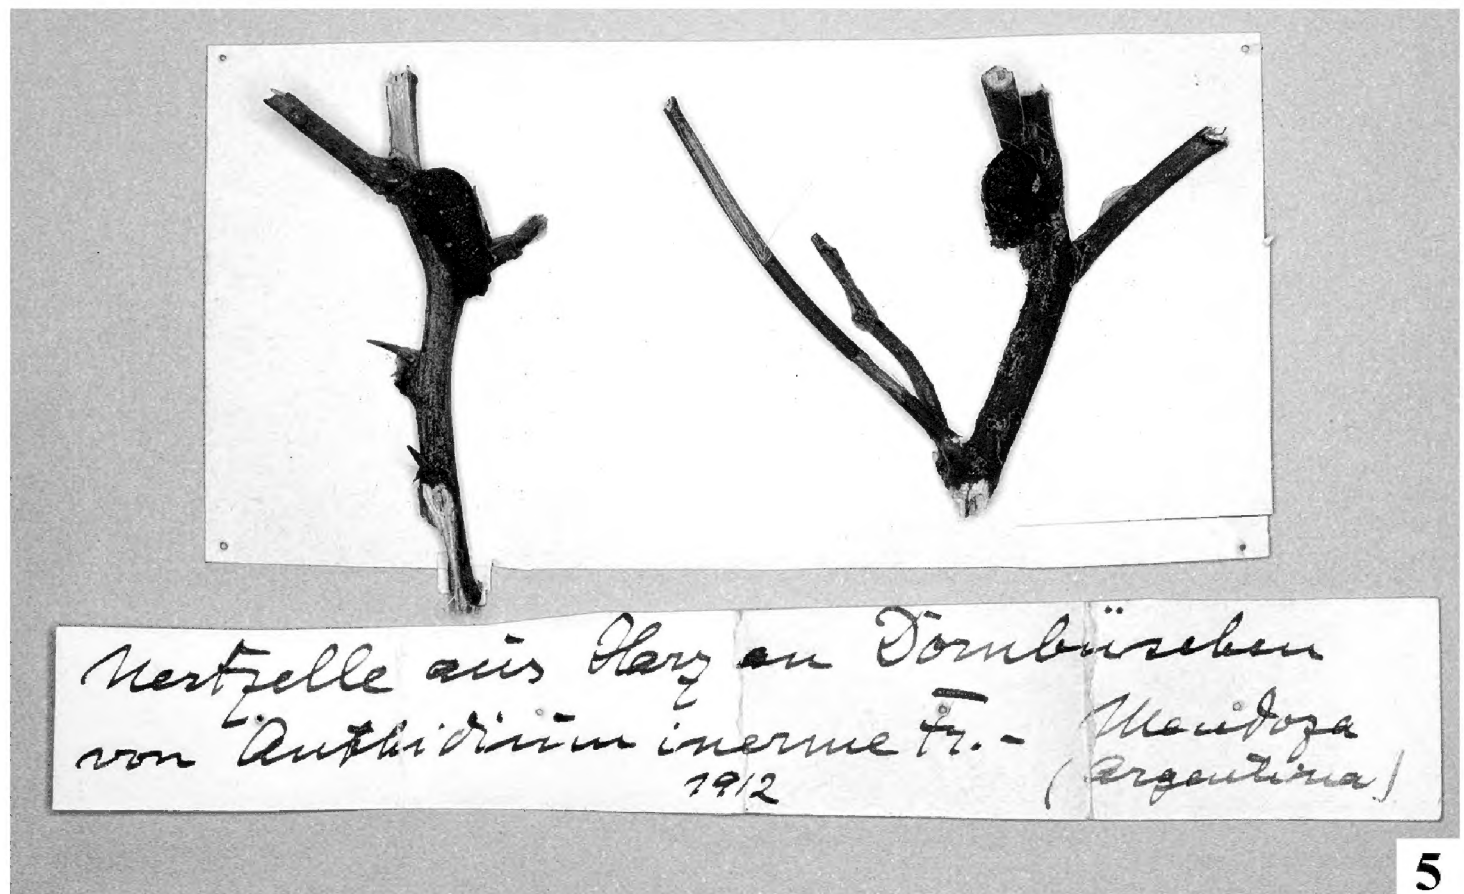 Nestzelle aus Harz an Dornbüschen
von Anthidium inerme Fr. - Mendoza
1912 (Argentina)
5